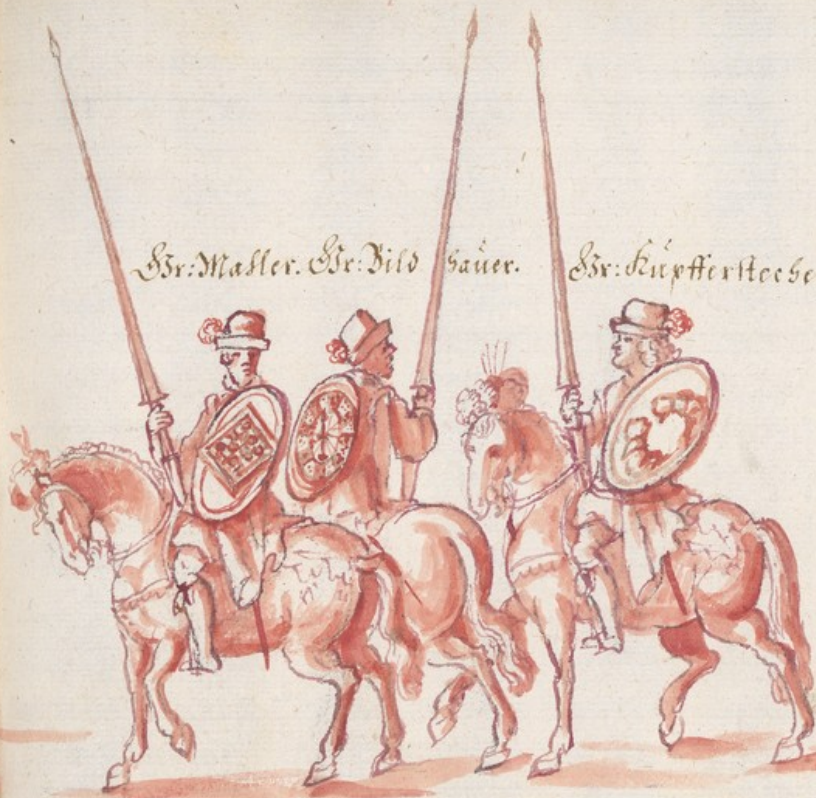 Gr: Mahler. Gr: Bild hauer. Gr: Kupffersteche